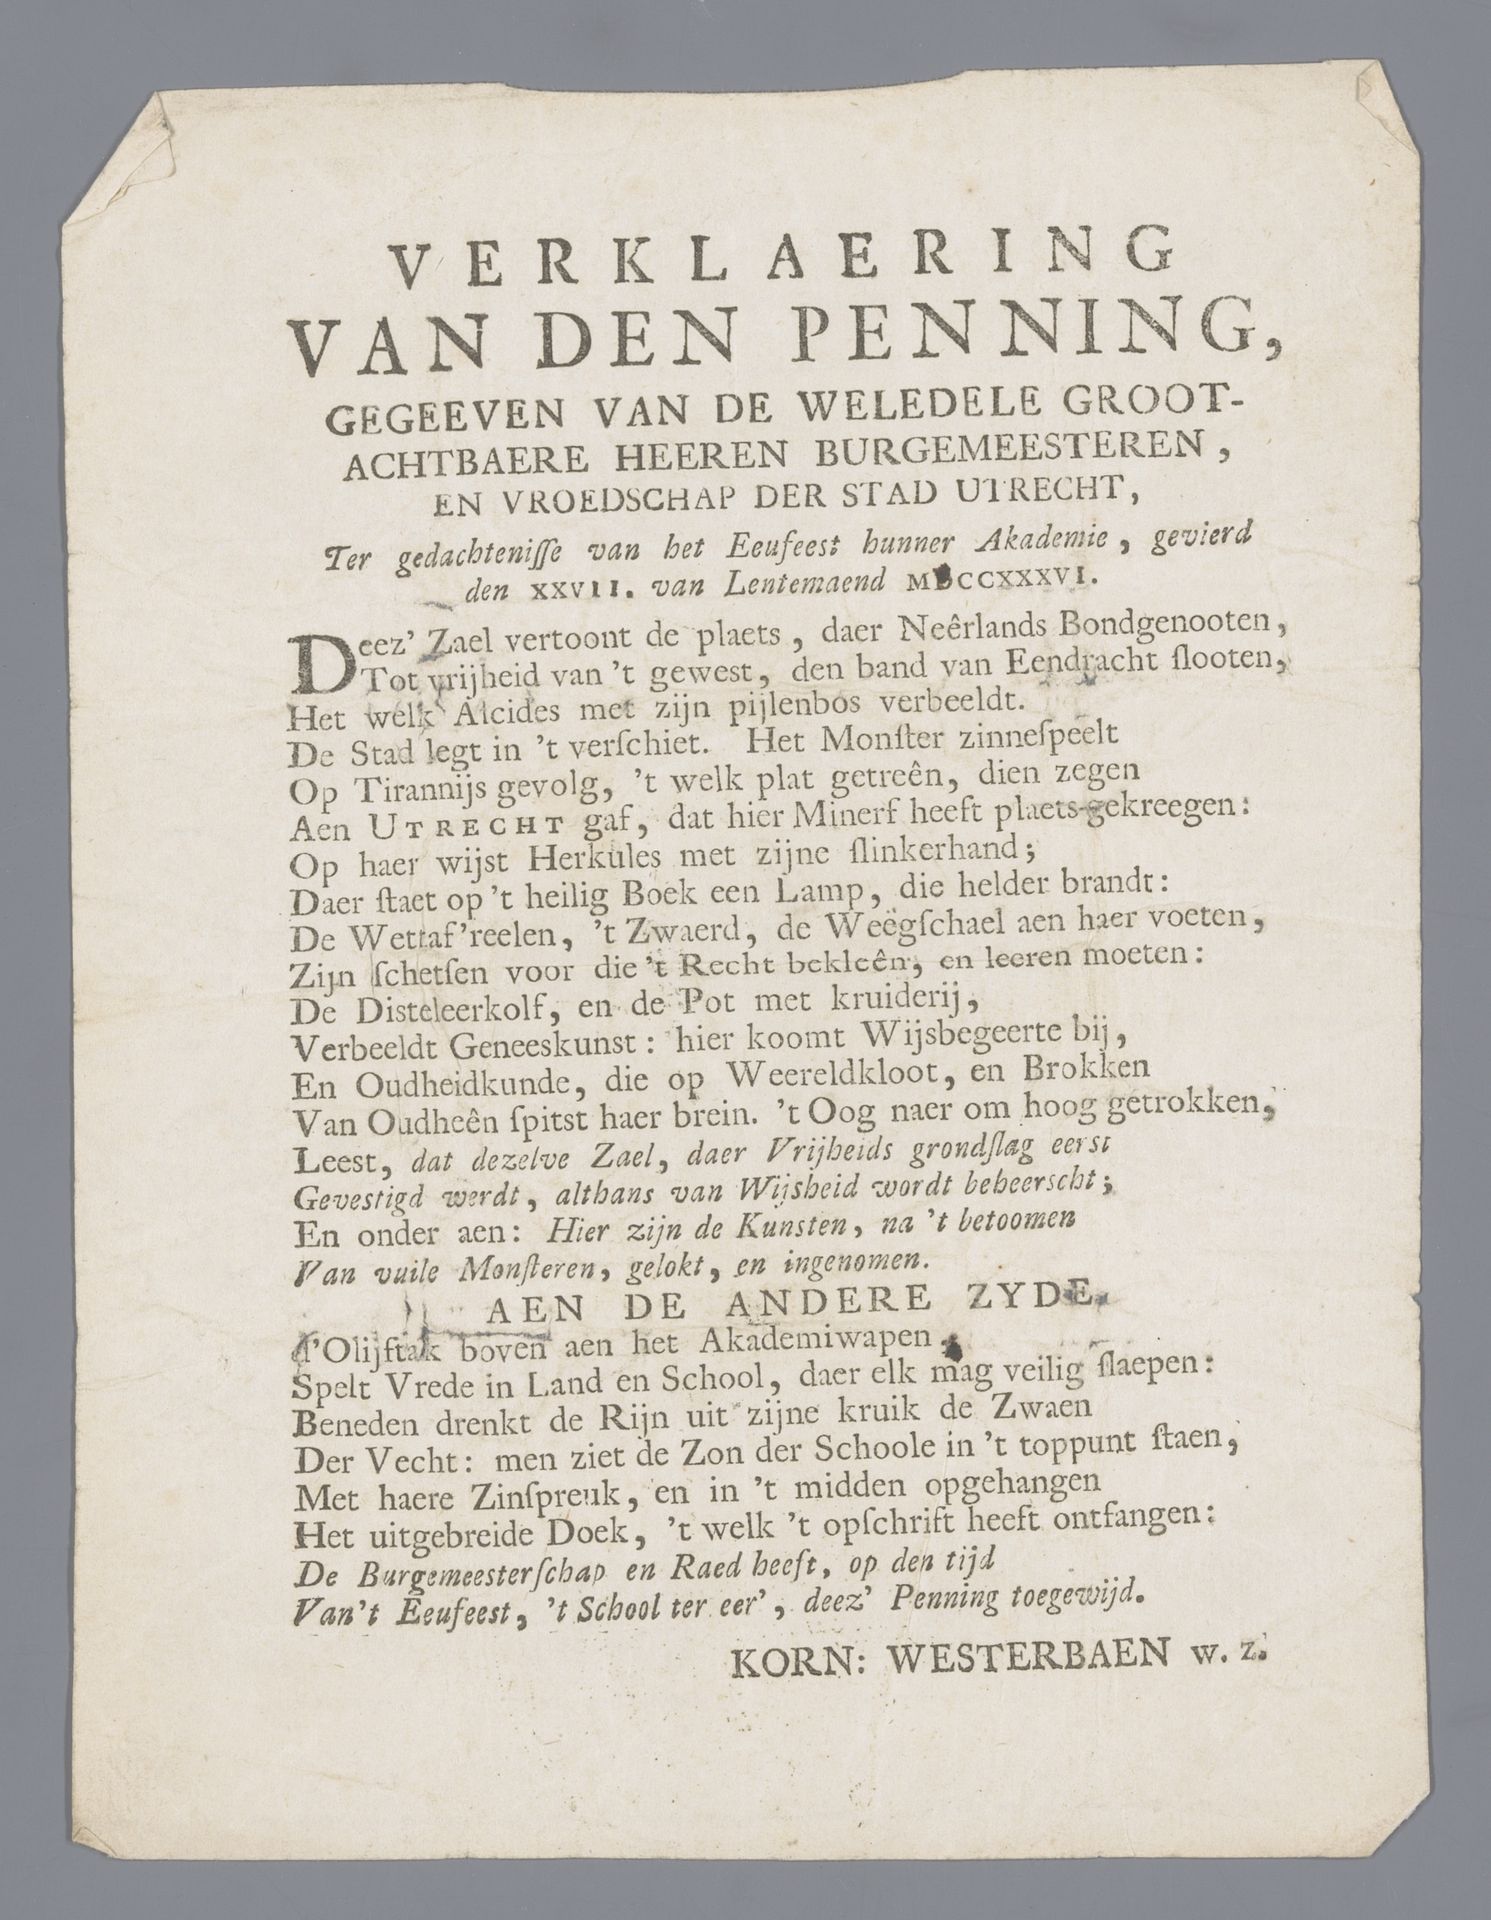 VERKLAERING
VAN DEN PENNING,
GEGEEVEN VAN DE WELEDELE GROOT-
ACHTBAERE HEEREN BURGEMEESTEREN,
EN VROEDSCHAP DER STAD UTRECHT,
Ter gedachteniſſe van het Eeufeest hunner Akademie, gevierd
den XXVII. van Lentemaend MDCCXXXVI.
Deez' Zael vertoont de plaets, daer Neêrlands Bondgenooten,
Tot vrijheid van 't gewest, den band van Eendracht ſlooten,
Het welk Alcides met zijn pijlenbos verbeeldt.
De Stad legt in 't verſchiet. Het Monſter zinneſpeelt
Op Tirannijs gevolg, 't welk plat getreên, dien zegen
Aen UTRECHT gaf, dat hier Minerf heeft plaets gekreegen:
Op haer wijst Herkules met zijne ſlinkerhand;
Daer ſtaet op 't heilig Boek een Lamp, die helder brandt:
De Wettaf'reelen, 't Zwaerd, de Weëgſchael aen haer voeten,
Zijn ſchetſen voor die 't Recht bekleên, en leeren moeten:
De Disteleerkolf, en de Pot met kruiderij,
Verbeeldt Geneeskunst: hier koomt Wijsbegeerte bij,
En Oudheidkunde, die op Weereldkloot, en Brokken
Van Oudheên ſpitst haer brein. 't Oog naer om hoog getrokken,
Leest, dat dezelve Zael, daer Vrijheids grondſlag eerst
Gevestigd werdt, althans van Wijsheid wordt beheerscht;
En onder aen: Hier zijn de Kunsten, na 't betoomen
Van vuile Monſteren, gelokt, en ingenomen.
AEN DE ANDERE ZYDE.
d'Olijftak boven aen het Akademiwapen
Spelt Vrede in Land en School, daer elk mag veilig ſlaepen:
Beneden drenkt de Rijn uit zijne kruik de Zwaen
Der Vecht: men ziet de Zon der Schoole in 't toppunt ſtaen,
Met haere Zinſpreuk, en in 't midden opgehangen
Het uitgebreide Doek, 't welk 't opſchrift heeft ontfangen:
De Burgemeesterſchap en Raed heeft, op den tijd
Van 't Eeufeest, 't School ter eer', deez' Penning toegewijd.
KORN: WESTERBAEN W. Z.